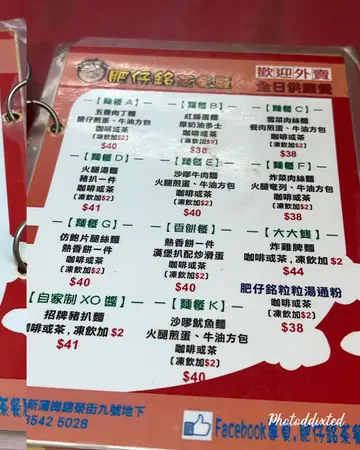 肥仔銘茶餐廳
歡迎外賣
全日供應餐
【麵餐A】
五香肉丁麵
腸仔煎蛋、牛油方包
咖啡或茶
(凍飲加$2)
$40
【麵餐B】
紅腸蛋麵
厚奶油多士
咖啡或茶
(凍飲加$2)
$38
【麵餐C】
雪菜肉絲麵
餐肉煎蛋、牛油方包
咖啡或茶
(凍飲加$2)
$38
【麵餐D】
火腿湯麵
豬扒一件
咖啡或茶
(凍飲加$2)
$41
【麵餐E】
沙嗲牛肉麵
火腿煎蛋、牛油方包
咖啡或茶
(凍飲加$2)
$40
【麵餐F】
炸菜肉絲麵
火腿奄列、牛油方包
咖啡或茶
(凍飲加$2)
$38
【麵餐G】
仿鮑片腿絲麵
熱香餅一件
咖啡或茶
(凍飲加$2)
$40
【香餅餐】
熱香餅一件
漢堡扒配炒滑蛋
咖啡或茶
(凍飲加$2)
$40
【大大雞】
炸雞脾麵
咖啡或茶
(凍飲加$2)
$44
【自家制XO醬】
招牌豬扒麵
咖啡或茶,凍飲加$2
$41
【麵餐K】
沙嗲魷魚麵
火腿煎蛋、牛油方包
咖啡或茶
(凍飲加$2)
$40
肥仔銘粒粒湯通粉
咖啡或茶,凍飲加$2
$38
新蒲崗錦榮街九號地下
3542 5028
Facebook專頁,肥仔銘茶餐
茶餐
Photoddixted